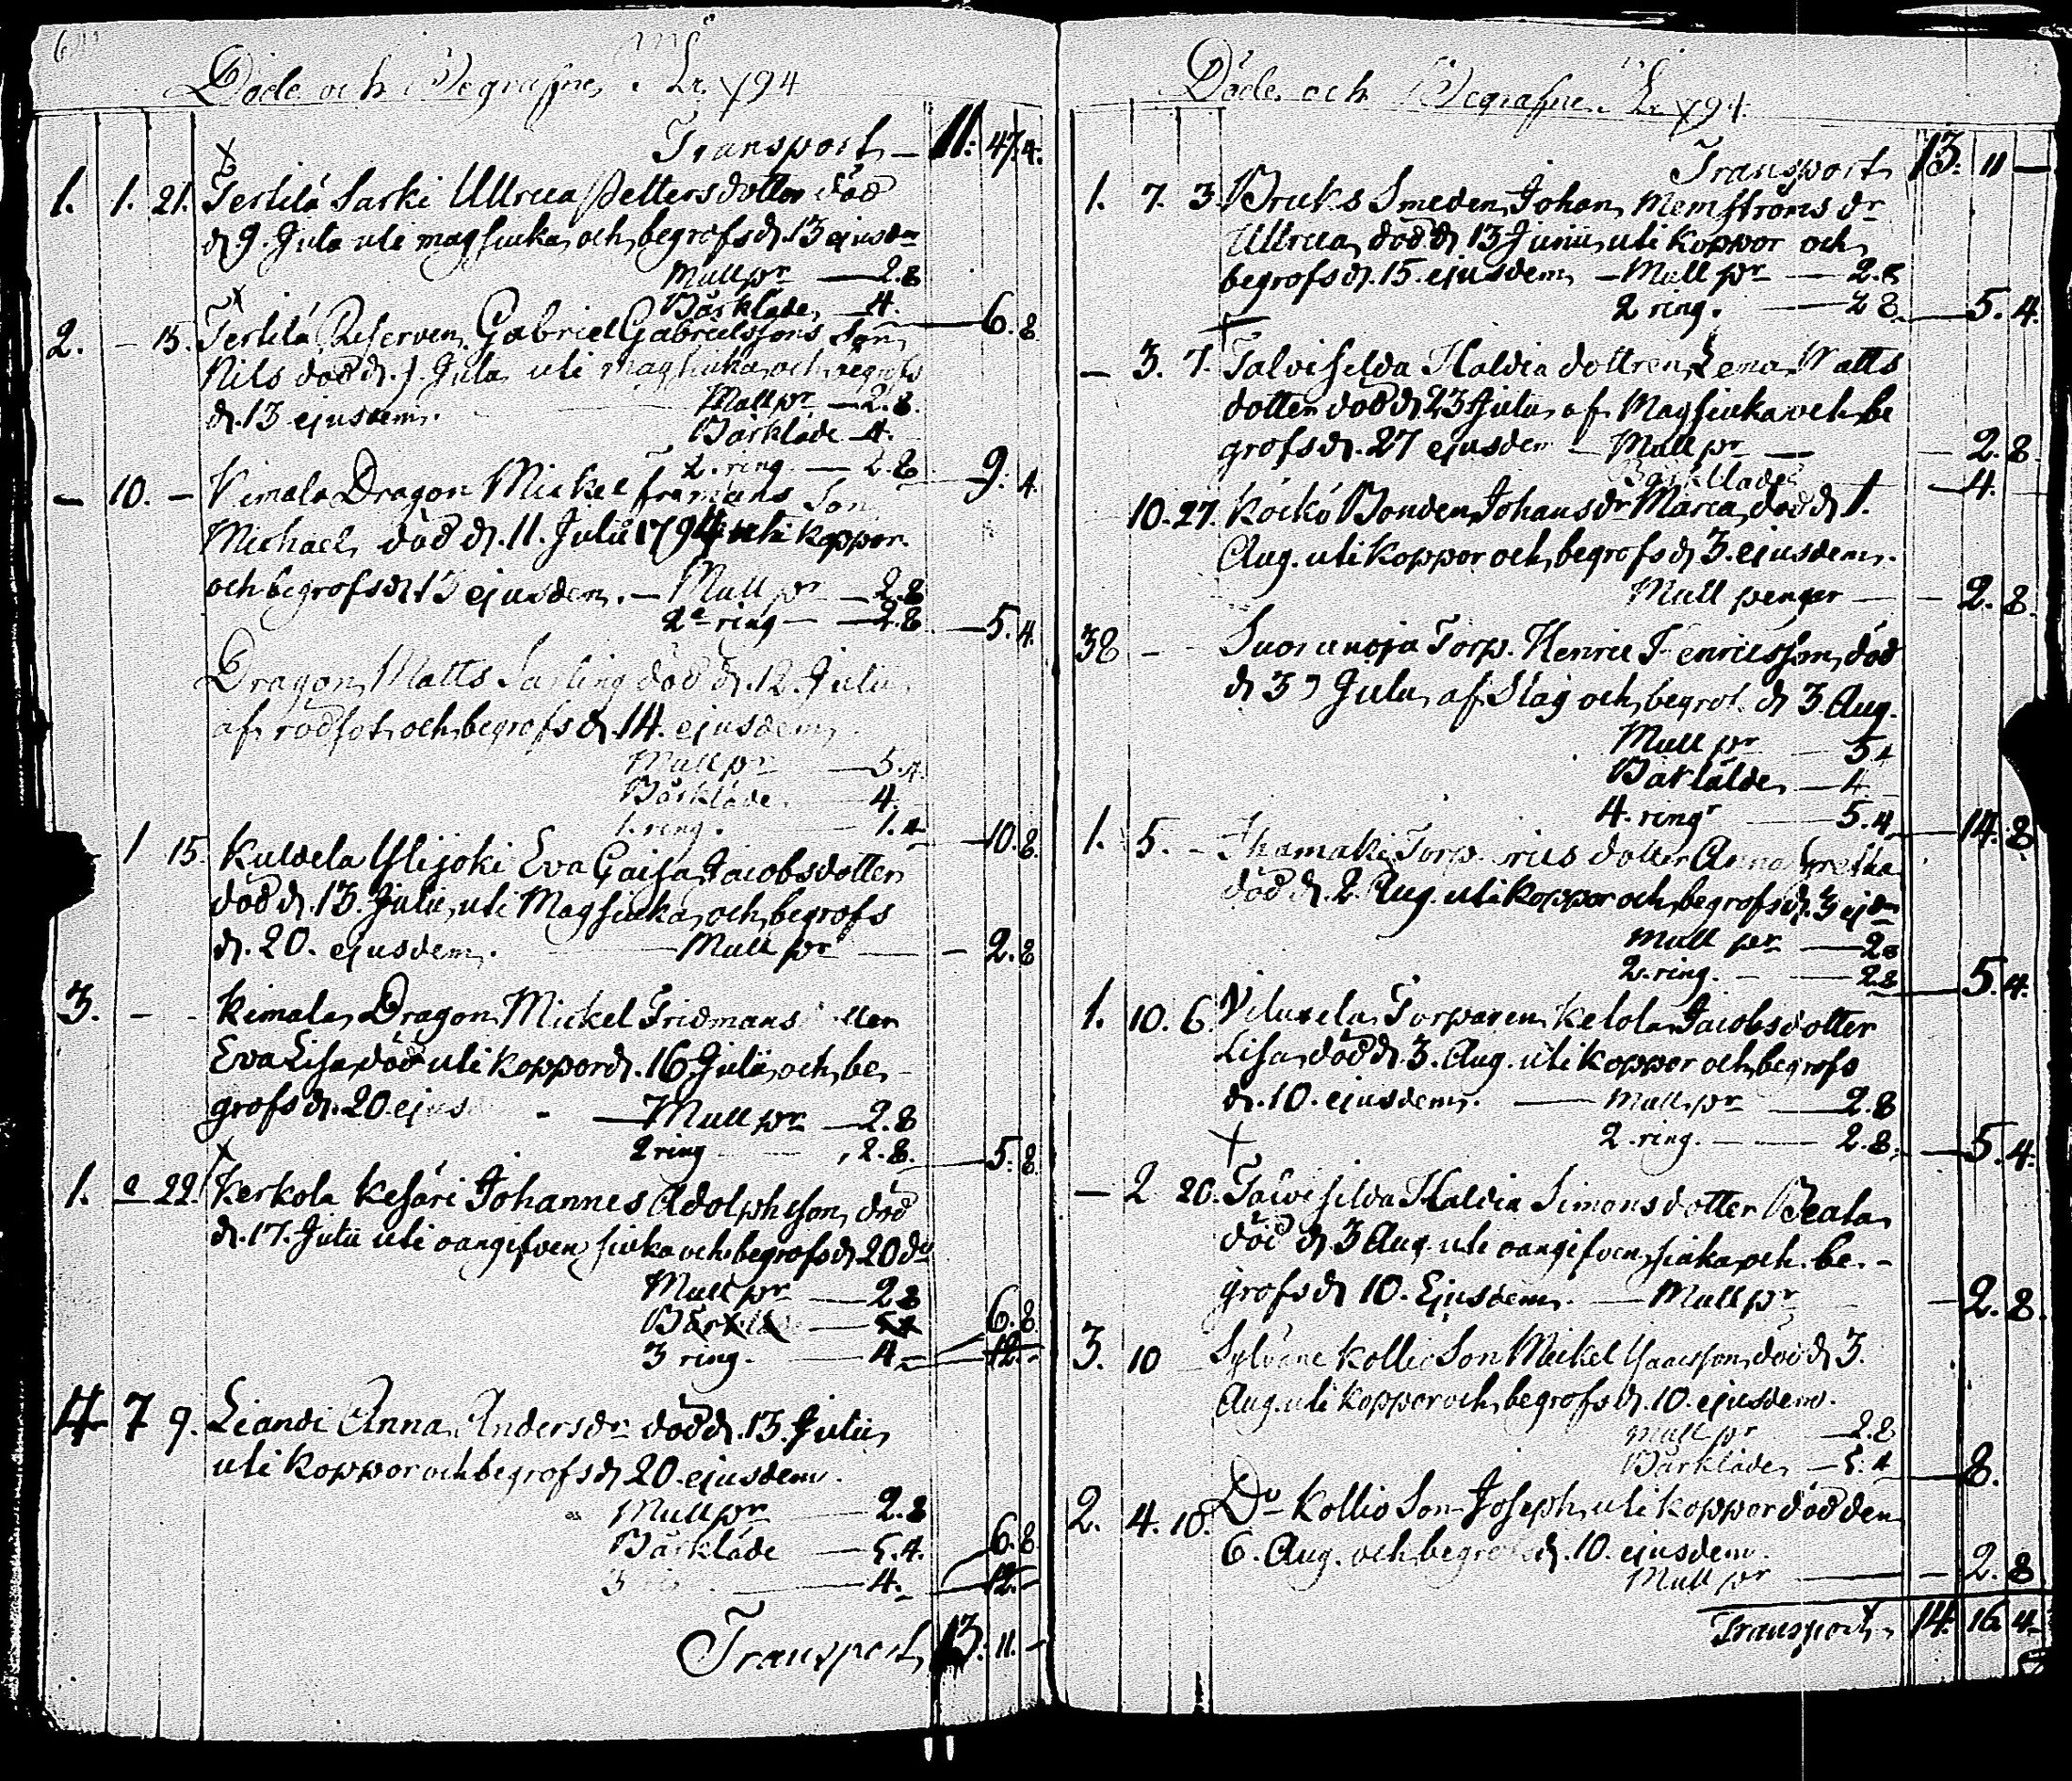 Döde och Begrafne År 1794
Transport — 11. 47. 4.
1. 1. 21. Tertilä Sarki Ullrica Pettersdotter död
d. 9. Julii uti magsiuka och begrofs d. 13 ejusdm
Mull pr — 2.8
Bårkläde 4. — 6. 8
2. — 15. Tertilä Reserven Gabriel Gabrielssons Son
Nils död d. Julii uti magsiuka och begrofs
d. 13 ejusdem. Mull pr — 2.8.
Bårkläde 4.
2. ring — 2.8 — 9. 4.
— 10. — Kimala Dragon Mickel Son
Michael död d. 11. Julii 1794 uti koppor
och begrofs d. 13 ejusdem. — Mull pr — 2.8
2 ring — 2.8. — 5. 4.
Dragon Matts död d. 12. Julii
af rödsot och begrofs d. 14. ejusdem
Mull pr — 5.4.
Bårkläde 4.
1. ring. 1.4 — 10. 8.
1 15. Kuldela Ylijoki Eva Caisa Jacobsdotter
död d. 13. Julii uti Magsiuka och begrofs
d. 20. ejusdem. — Mull pr — 2. 8
3. — - Kimala Dragon Mickel Fridmans
Eva Lisa död uti koppor d. 16 Julii och be-
grofs d. 20 ejus — Mull pr — 2.8
2 ring 2.8. — 5. 8.
1. 2 22. Kerkola Kesäri Johannes Adolphsson död
d. 17. Julii uti oangifven siuka och begrofs d. 20 do
Mull pr — 2 8
Bårkläde — 5 4 6. 8
3 ring. — 4. — 12. -
4 7 9. Liandi Anna Andersdr död d. 13. Julii
uti koppor och begrofs d. 20. ejusdem.
Mull pr — 2.8
Bårkläde — 5.4. 6. 8
3 — 4. — 12. -
Transport 13. 11. -
Döde och Begrafne År 1794.
Transport 13. 11 —
1. 7. 3. Bruks Smeden Johan Memströms dr
Ullrica död d 13 Junii uti koppor och
begrofs d. 15. ejusdem — Mull pr — 2.8
2 ring. — 2 8. — 5. 4.
— 3. 7. Talvisilda Haldia dottren Lena Matts
dotter död d 23 Julii af Magsiuka och be
grofs d. 27 ejusdem — Mull pr — — 2. 8.
Bårkläde — 4.
10. 27. Köckö Bonden Johans dr Maria död d 1.
Aug. uti koppor och begrofs d 3. ejusdem.
Mull pengar — - 2. 8.
38 - - Torp. Henric Henricsson död
d 3 Julii af Slag och begrof d 3. Aug.
Mull pr — 5 4
Bårkläde — 4
4. ringr — 5.4 — 14. 8.
1. 5. - Torp. dotter Anna Gretha
död d. 2. Aug. uti koppor och begrofs d. 3 ejdm
Mull pr — 2 8
2. ring. — 2.8 — 5. 4.
1. 10. 6. Torparen Kelola Jacobs dotter
Lisa död d. 3. Aug. uti koppor och begrofs
d. 10. ejusdem. — Mull pr — 2.8
2. ring. — 2.8. — 5. 4.
— 2 20. Talvisilda Haldia Simons dotter Beata
död d 3 Aug. uti oangifven siuka och be. -
grofs d 10. Ejusdem. — Mull pr — 2. 8.
3. 10 Kollio Son Mickel död d 3.
Aug. uti koppor och begrofs d. 10. ejusdem.
Mull pr — 2.8
Bårkläde — 5.4 — 8.
2. 4. 10. Do Kollio Son Joseph uti koppor död den
6. Aug. och d. 10. ejusdem.
Mull pr — 2. 8
Transport 14. 16. 4